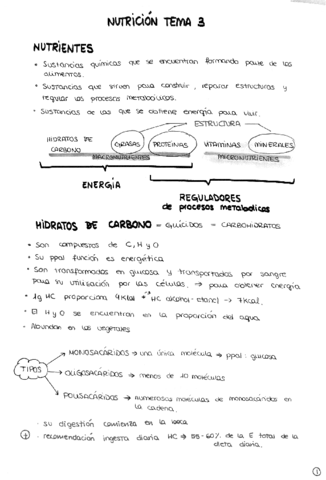 NUTRICIÓN TEMA 3
NUTRIENTES
• Sustancias químicas que se encuentran formando parte de los
alimentos.
• Sustancias que sirven para construir, reparar estructuras y
regular los procesos metabólicos.
• Sustancias de las que se obtiene energía para vivir.
ESTRUCTURA
HIDRATOS DE CARBONO GRASAS PROTEINAS VITAMINAS MINERALES
MACRONUTRIENTES
ENERGÍA
REGULADORES
de procesos metabolicos
HIDRATOS DE CARBONO = GLÚCIDOS = CARBOHIDRATOS
• Son compuestos de C, H y O
• Su ppal función es energética
• Son transformados en glucosa y transportados por sangre
para su utilización por las células. → para obtener energía
• 1g HC proporciona 4Kcal HC alcohol-etanol → 7Kcal.
• El H y O se encuentran en la proporción del agua
• Abundan en los vegetales
TIPOS
→ MONOSACÁRIDOS → una única molécula → ppal: glucosa
→ OLIGOSACÁRIDOS → menos de 10 moléculas
→ POLISACÁRIDOS → numerosas moléculas de monosacáridos en
la cadena.
· su digestión comienza en la boca
+ · recomendación ingesta diaria HC → 55-60% de la E total de la
dieta diaria.
1